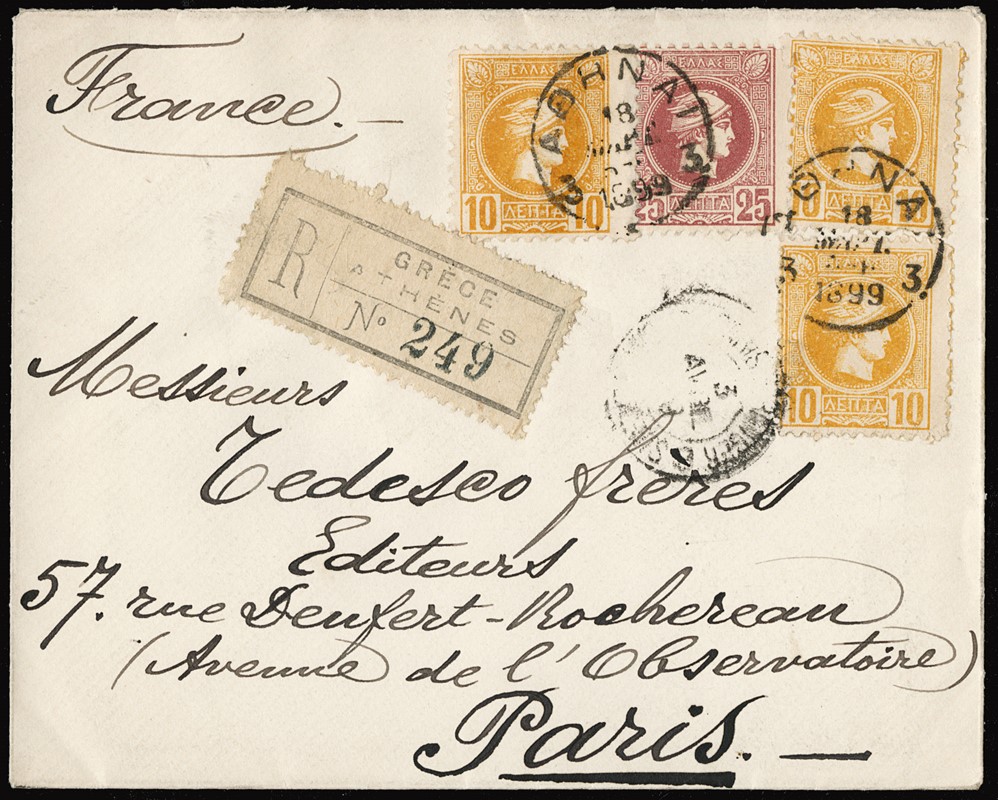 France.—
ΕΛΛΑΣ
10 ΛΕΠΤΑ 10
ΕΛΛΑΣ
25 ΛΕΠΤΑ 25
ΕΛΛΑΣ
10 10
10 ΛΕΠΤΑ 10
ΑΘΗΝΑΙ
18
ΜΑΡΤ
1899
3 3
ΑΘΗΝΑΙ
18
ΜΑΡΤ.
1899
3 3.
R
GRÈCE
ATHÈNES
No 249
3
Messieurs
Tedesco frères
Editeurs
57. rue Denfert-Rochereau
(Avenue de l'Observatoire)
Paris.—